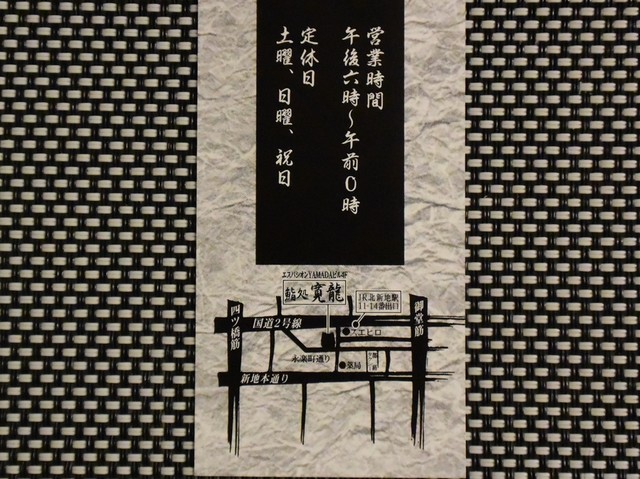 営業時間
午後六時～午前0時
定休日
土曜、日曜、祝日
エスパシオンYAMADAビル4F
鮨処 寛龍
JR北新地駅
11-14番出口
四ツ橋筋
御堂筋
国道2号線
スエヒロ
永楽町通り
薬局
新地本通り